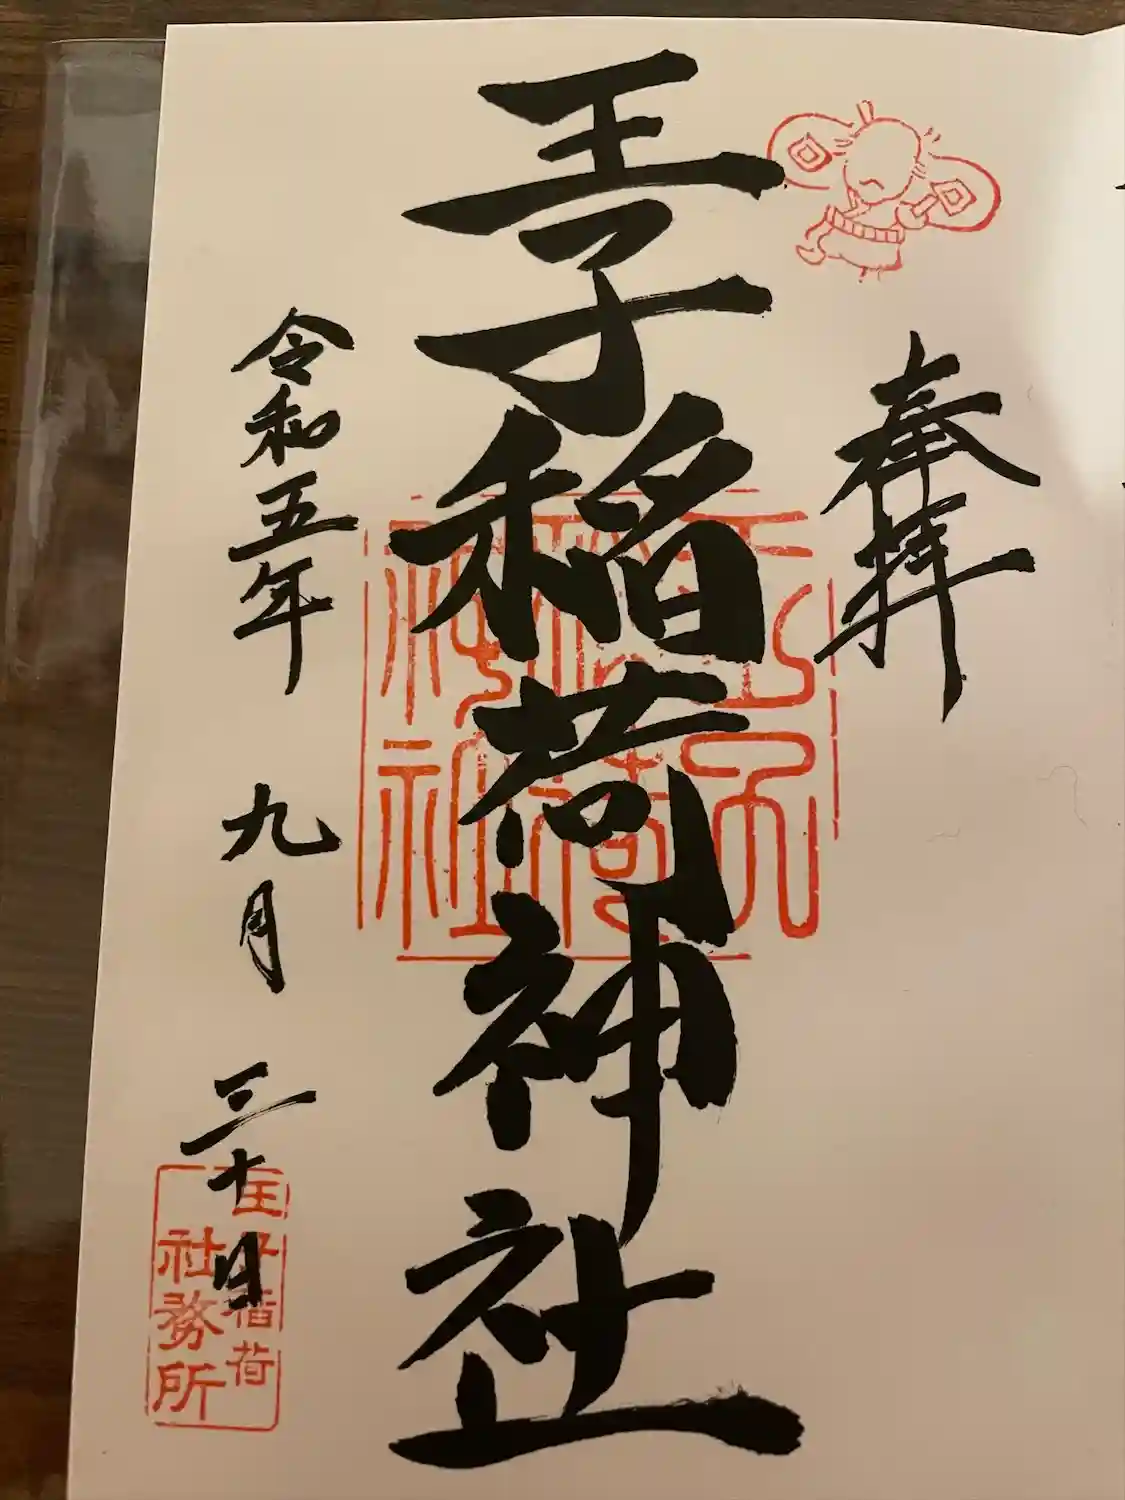 奉拝
王子稲荷神社
令和五年 九月 三十日
王子稲荷
神社
王子稲荷
社務所